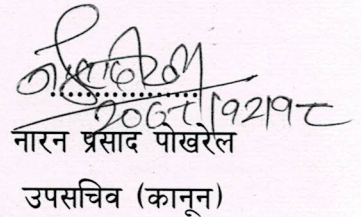 २०७८।१२।१८
नारन प्रसाद पोखरेल
उपसचिव (कानून)